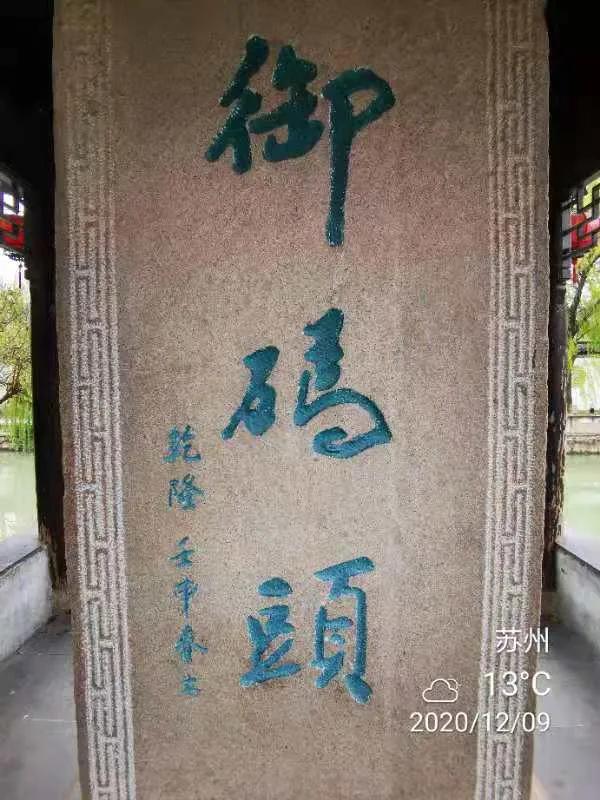 御碼頭
乾隆 壬申春立
苏州
13°C
2020/12/09